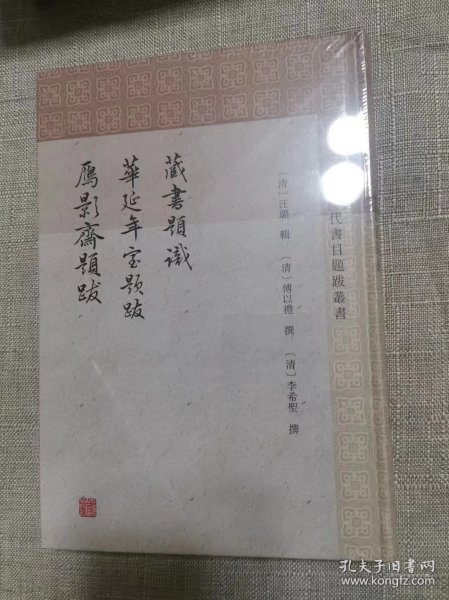 代書目題跋叢書
〔清〕汪璐 輯 〔清〕傅以禮 撰 〔清〕李希聖 撰
藏書題識
華延年室題跋
雁影齋題跋
孔夫子旧书网
www.kongfz.com